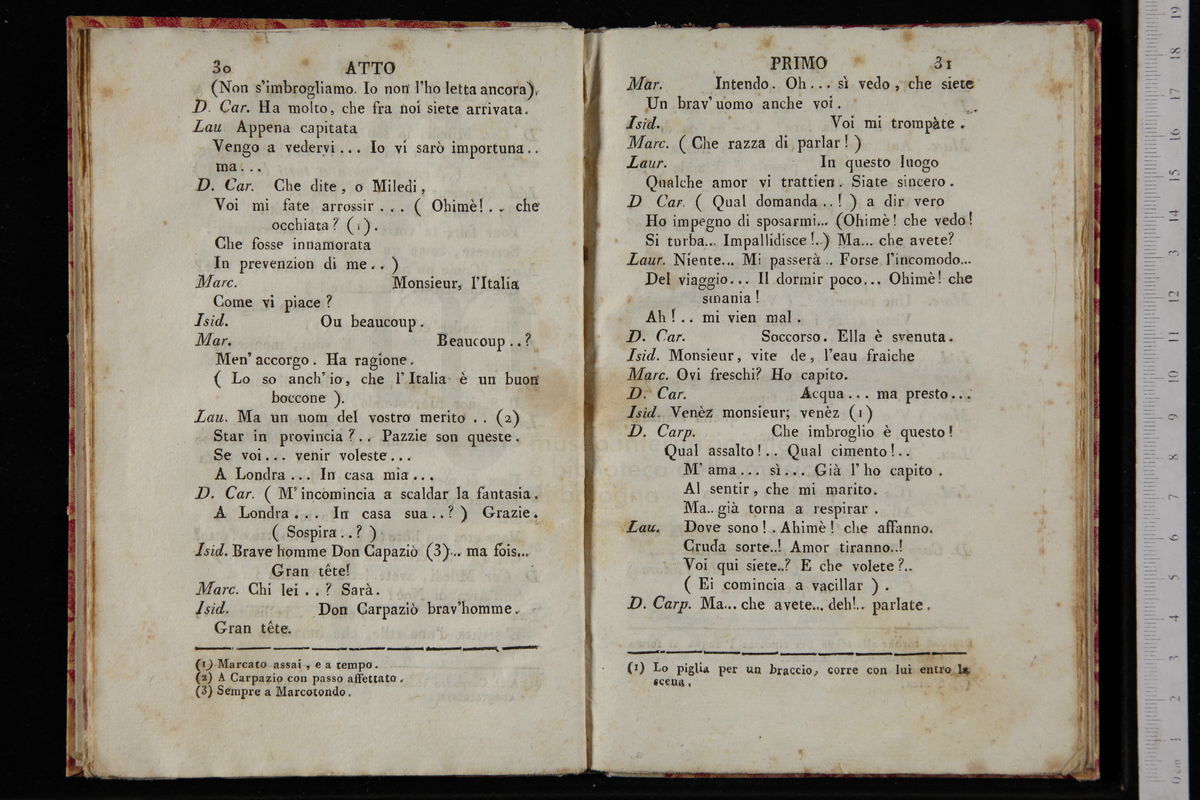 30 ATTO
(Non s'imbrogliamo. Io non l'ho letta ancora).
D. Car. Ha molto, che fra noi siete arrivata.
Lau Appena capitata
Vengo a vedervi... Io vi sarò importuna..
ma...
D. Car. Che dite, o Miledi,
Voi mi fate arrossir... ( Ohimè!.. che
occhiata? (1).
Che fosse innamorata
In prevenzion di me.. )
Marc. Monsieur, l'Italia
Come vi piace?
Isid. Ou beaucoup.
Mar. Beaucoup..?
Men' accorgo. Ha ragione.
( Lo so anch' io, che l' Italia è un buon
boccone ).
Lau. Ma un uom del vostro merito.. (2)
Star in provincia?.. Pazzie son queste.
Se voi... venir voleste...
A Londra... In casa mia...
D. Car. ( M' incomincia a scaldar la fantasia.
A Londra... In casa sua..? ) Grazie.
( Sospira..? )
Isid. Brave homme Don Capaziò (3)... ma fois...
Gran tête!
Marc. Chi lei..? Sarà.
Isid. Don Carpaziò brav'homme.
Gran tête.
(1) Marcato assai, e a tempo.
(2) A Carpazio con passo affettato.
(3) Sempre a Marcotondo.
PRIMO 31
Mar. Intendo. Oh... sì vedo, che siete
Un brav' uomo anche voi.
Isid. Voi mi trompàte.
Marc. ( Che razza di parlar! )
Laur. In questo luogo
Qualche amor vi trattien. Siate sincero.
D Car. ( Qual domanda..! ) a dir vero
Ho impegno di sposarmi... (Ohimè! che vedo!
Si turba... Impallidisce!..) Ma... che avete?
Laur. Niente... Mi passerà.. Forse l'incomodo...
Del viaggio... Il dormir poco... Ohimè! che
smania!
Ah!.. mi vien mal.
D. Car. Soccorso. Ella è svenuta.
Isid. Monsieur, vite de, l'eau fraiche
Marc. Ovi freschi? Ho capito.
D. Car. Acqua... ma presto...
Isid. Venèz monsieur; venèz (1)
D. Carp. Che imbroglio è questo!
Qual assalto!.. Qual cimento!..
M' ama... sì... Già l' ho capito.
Al sentir, che mi marito.
Ma.. già torna a respirar.
Lau. Dove sono!. Ahimè! che affanno.
Cruda sorte..! Amor tiranno..!
Voi qui siete..? E che volete?..
( Ei comincia a vacillar ).
D. Carp. Ma... che avete... deh!.. parlate.
(1) Lo piglia per un braccio, corre con lui entro la
scena.